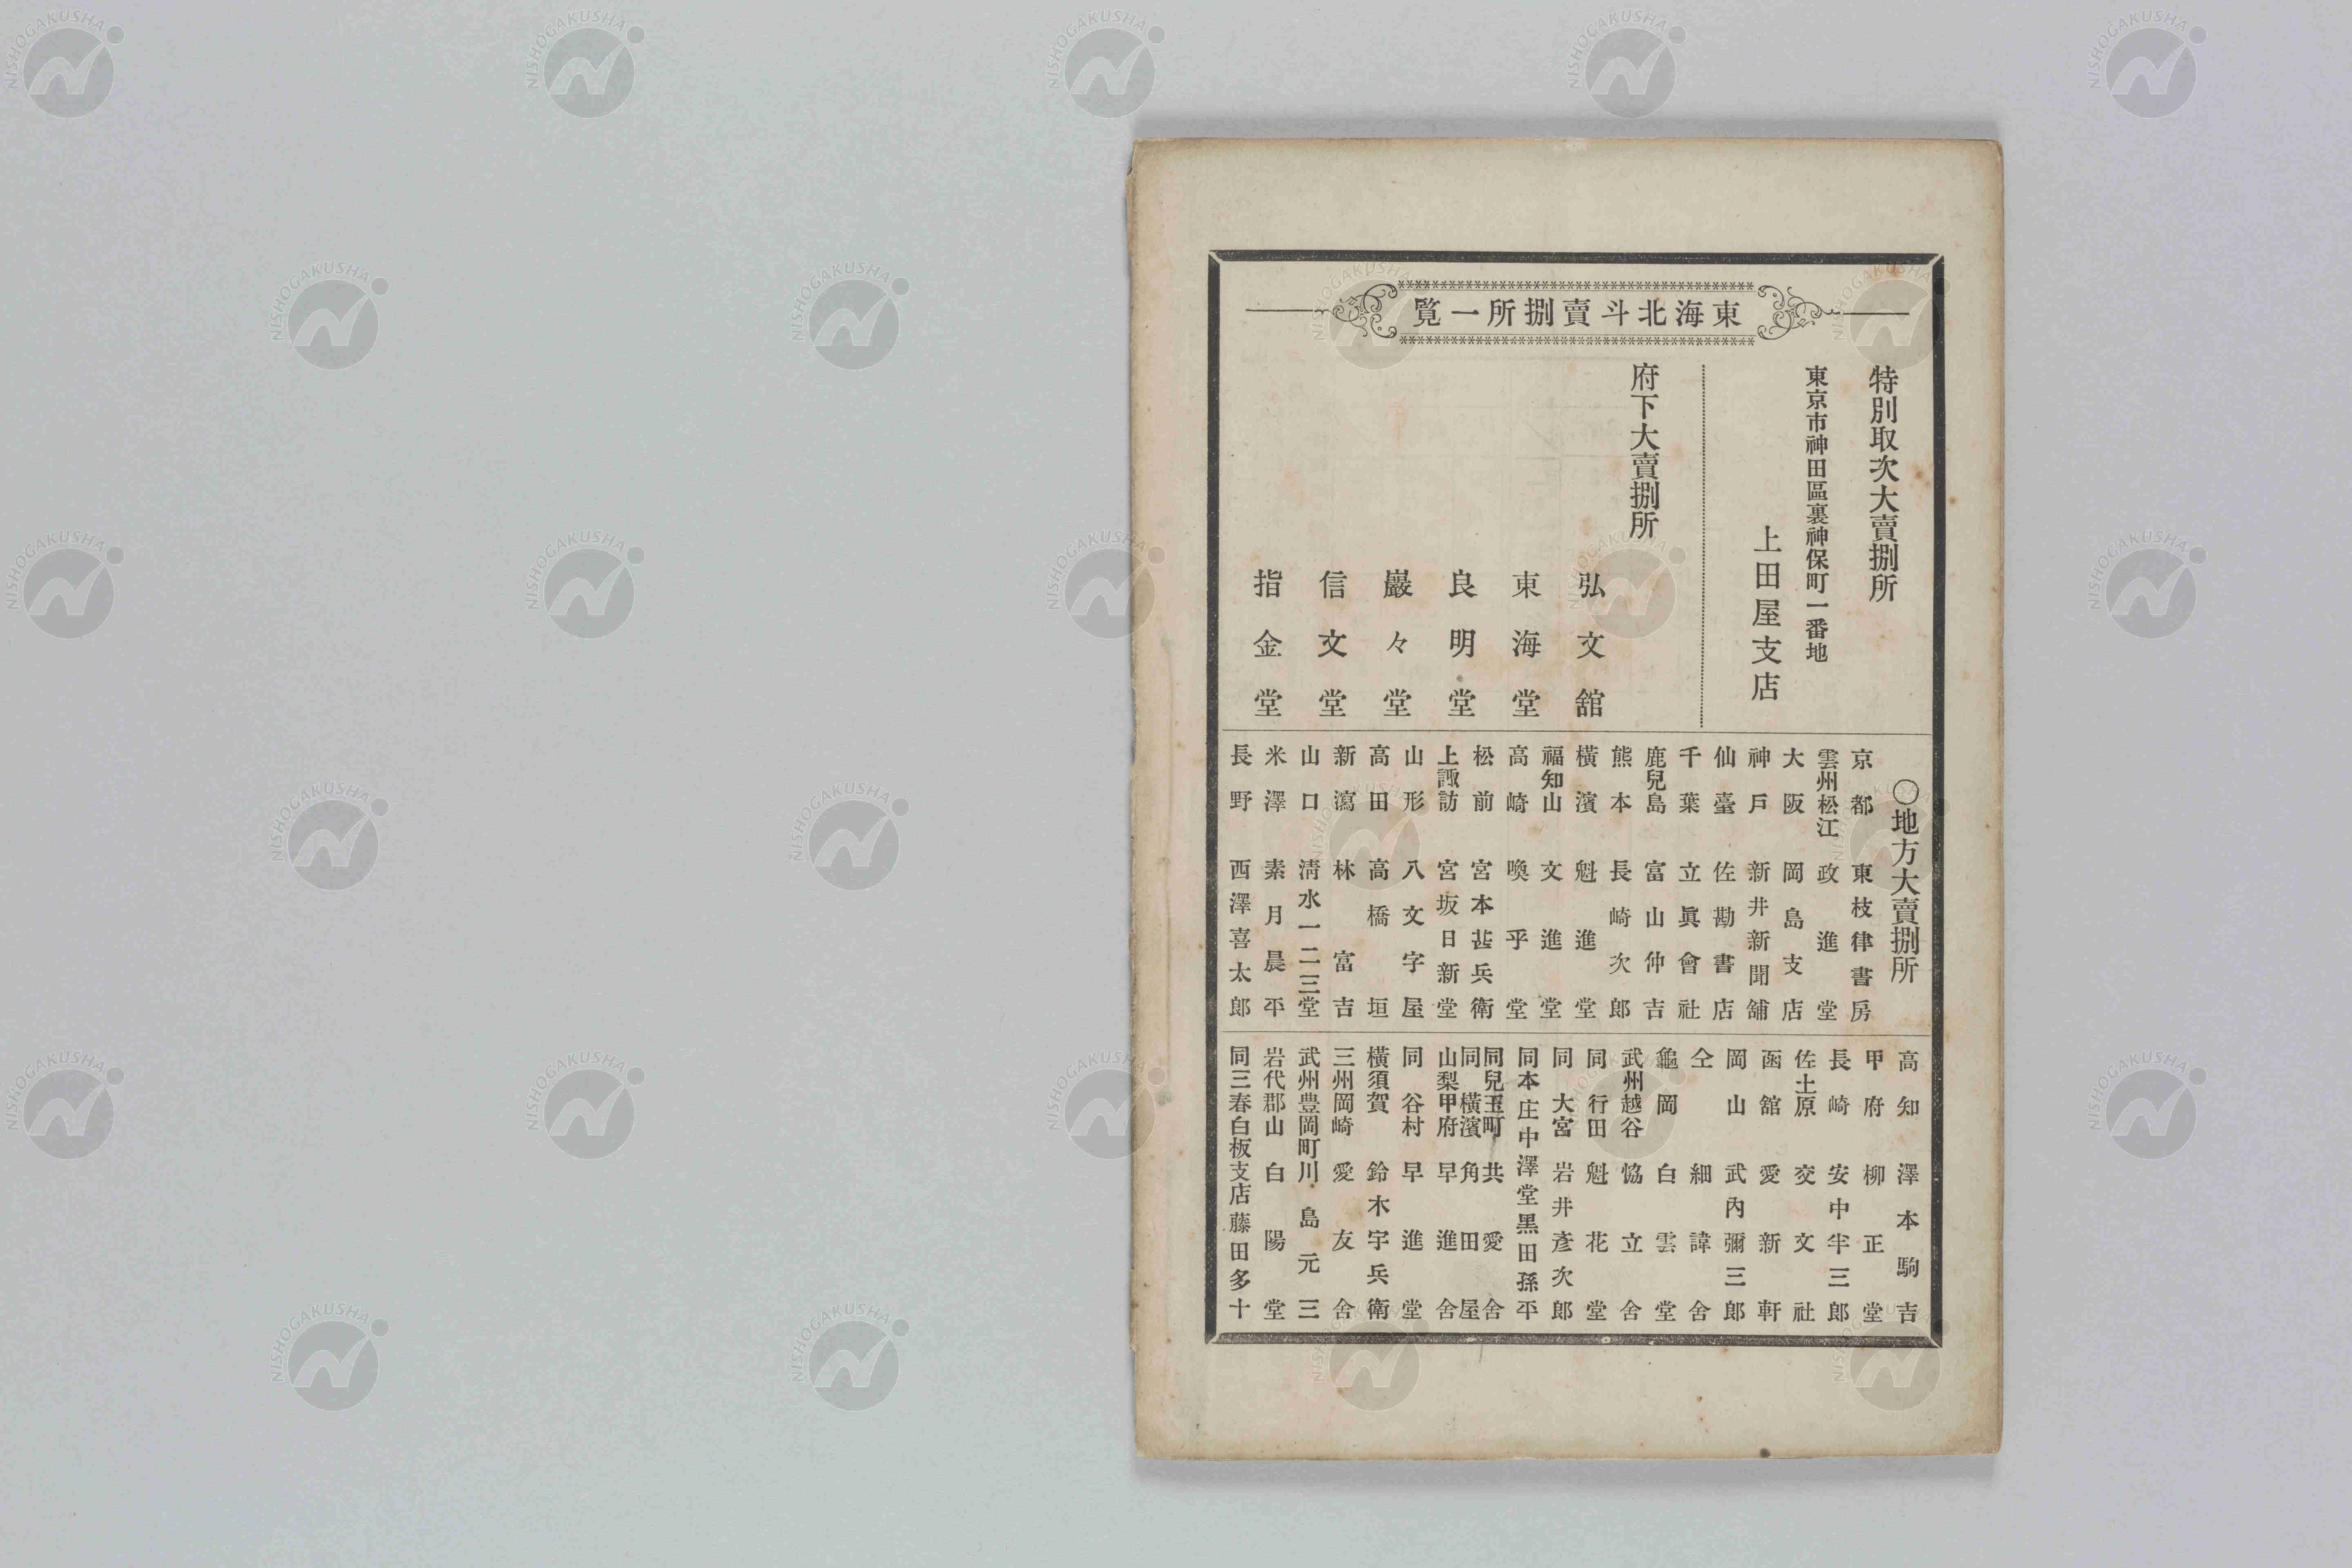 東海北斗賣捌所一覧
特別取次大賣捌所
東京市神田區裏神保町一番地
上田屋支店
府下大賣捌所
弘文舘
東海堂
良明堂
巖々堂
信文堂
指金堂
○地方大賣捌所
京都 東枝律書房
雲州松江 政進堂
大阪 岡島支店
神戸 新井新聞舗
仙臺 佐勘書店
千葉 立眞會社
鹿兒島 富山仲吉
熊本 長崎次郎
横濱 魁進堂
福知山 文進堂
高崎 喚乎堂
松前 宮本甚兵衛
上諏訪 宮坂日新堂
山形 八文字屋
高田 高橋垣
新瀉 林富吉
山口 清水一二三堂
米澤 素月晨平
長野 西澤喜太郎
高知 澤本駒吉
甲府 柳正堂
長崎 安中半三郎
佐土原 交文社
函舘 愛新軒
岡山 武内彌三郎
仝 細諱舎
龜岡 白雲堂
武州越谷 恊立舎
同行田 魁花堂
同大宮 岩井彦次郎
同本庄中澤堂黒田孫平
同兒玉町 共愛舎
同横濱 角田屋
山梨甲府 早進舎
同谷村 早進堂
横須賀 鈴木宇兵衛
三州岡崎 愛友舎
武州豊岡町川島元三
岩代郡山 白陽堂
同三春白板支店藤田多十
NISHOGAKUSHA